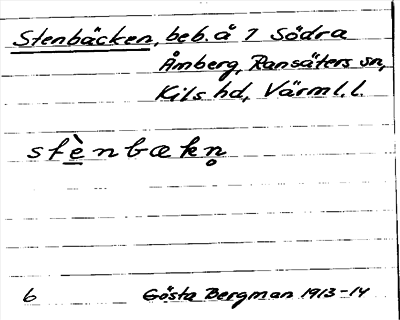 Stenbäcken, beb. å 7 Södra
Åmberg, Ransäters sn,
Kils hd, Värml. l.
stènbækn̥
6 Gösta Bergman 1913-14